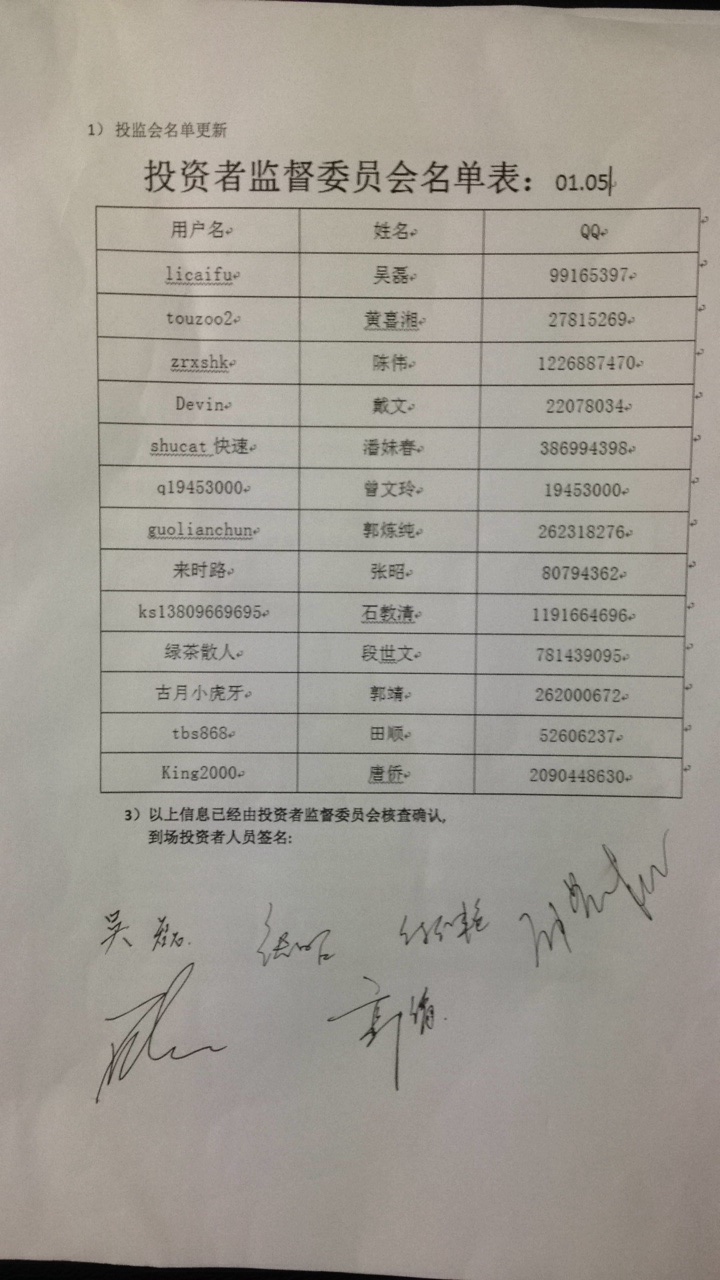 1） 投监会名单更新
投资者监督委员会名单表：01.05
用户名 姓名 QQ
licaifu 吴磊 99165397
touzoo2 黄喜湘 27815269
zrxshk 陈伟 1226887470
Devin 戴文 22078034
shucat 快速 潘妹春 386994398
q19453000 曾文玲 19453000
guolianchun 郭炼纯 262318276
来时路 张昭 80794362
ks13809669695 石教清 1191664696
绿茶散人 段世文 781439095
古月小虎牙 郭靖 262000672
tbs868 田顺 52606237
King2000 唐侨 2090448630
3）以上信息已经由投资者监督委员会核查确认,
到场投资者人员签名:
吴磊 张昭